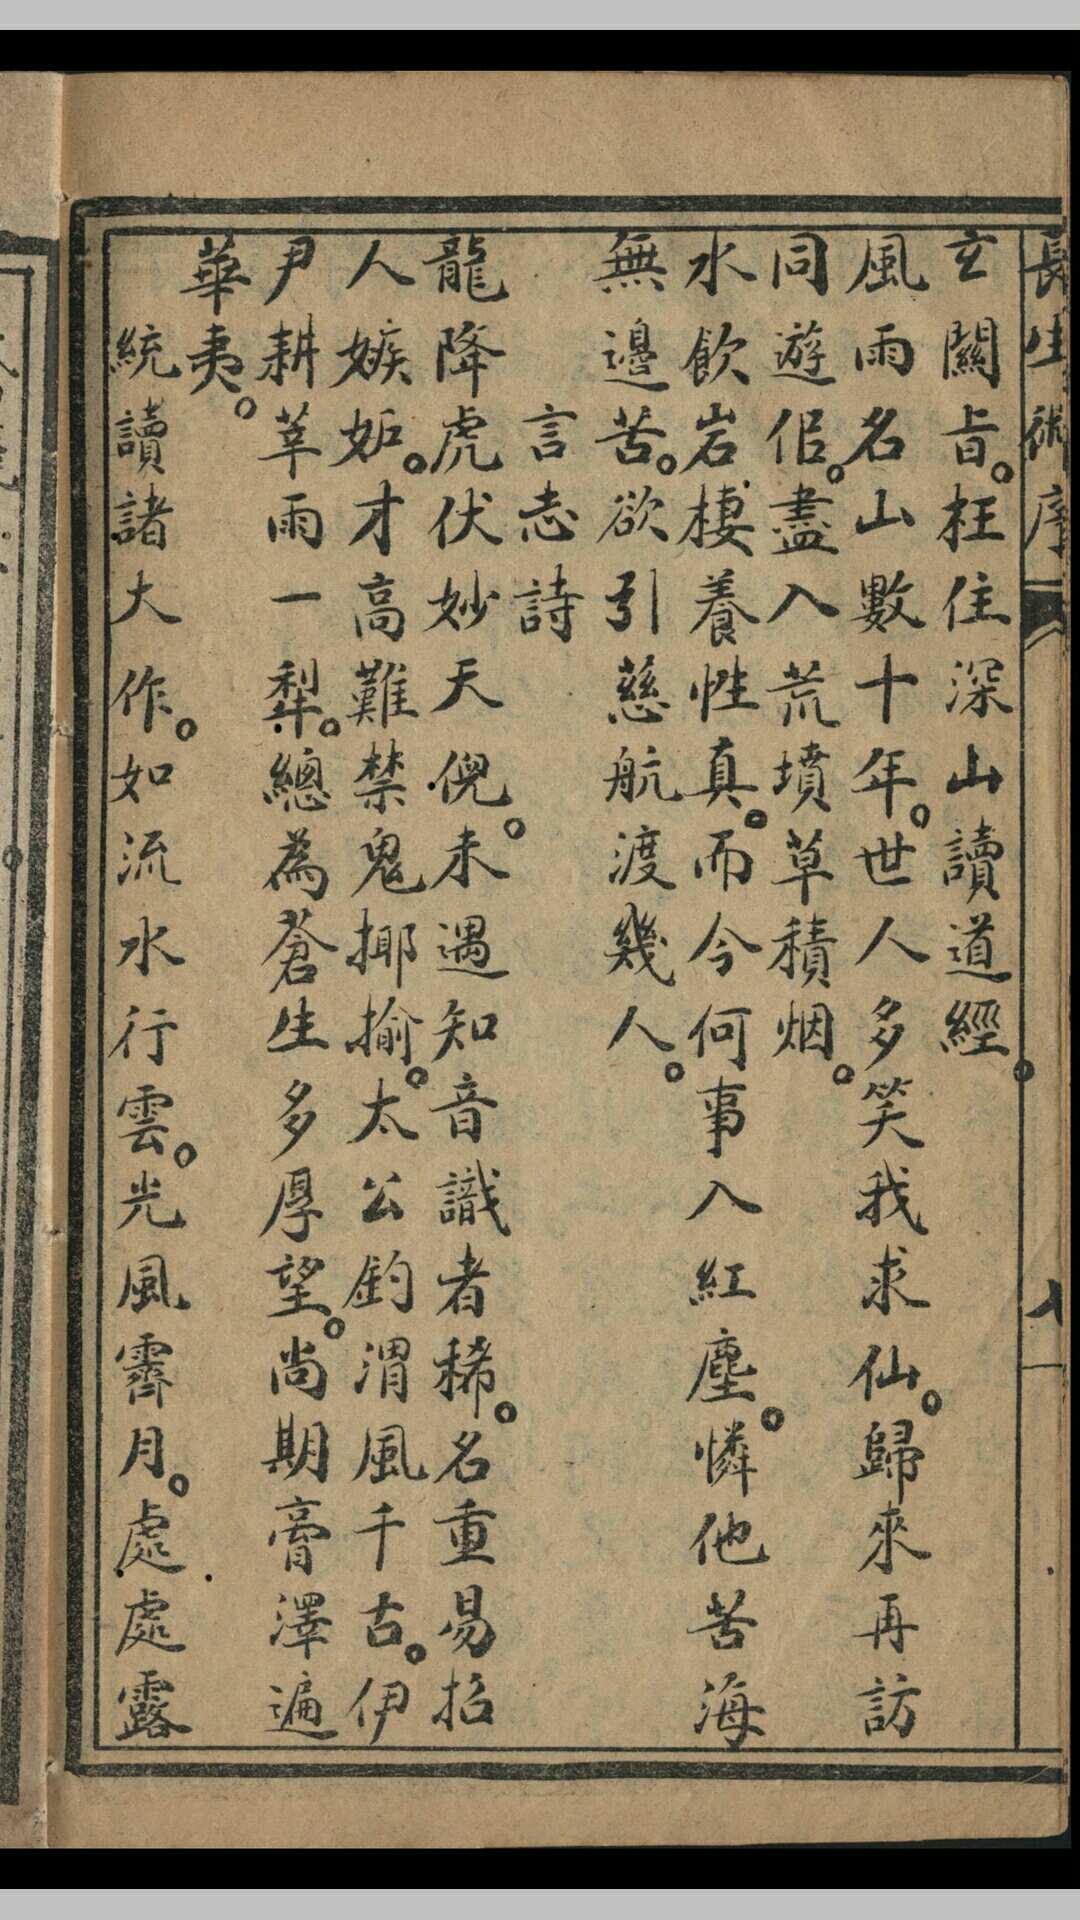 長生術序
玄關旨。枉住深山讀道經。
風雨名山數十年。世人多笑我求仙。歸來再訪
同遊侶。盡入荒墳草積烟。
水飲岩棲養性真。而今何事入紅塵。憐他苦海
無邊苦。欲引慈航渡幾人。
言志詩
龍降虎伏妙天倪。未遇知音識者稀。名重易招
人嫉妬。才高難禁鬼揶揄。太公釣渭風千古。伊
尹耕莘雨一犁。總為蒼生多厚望。尚期膏澤遍
華夷。
統讀諸大作。如流水行雲。光風霽月。處處露